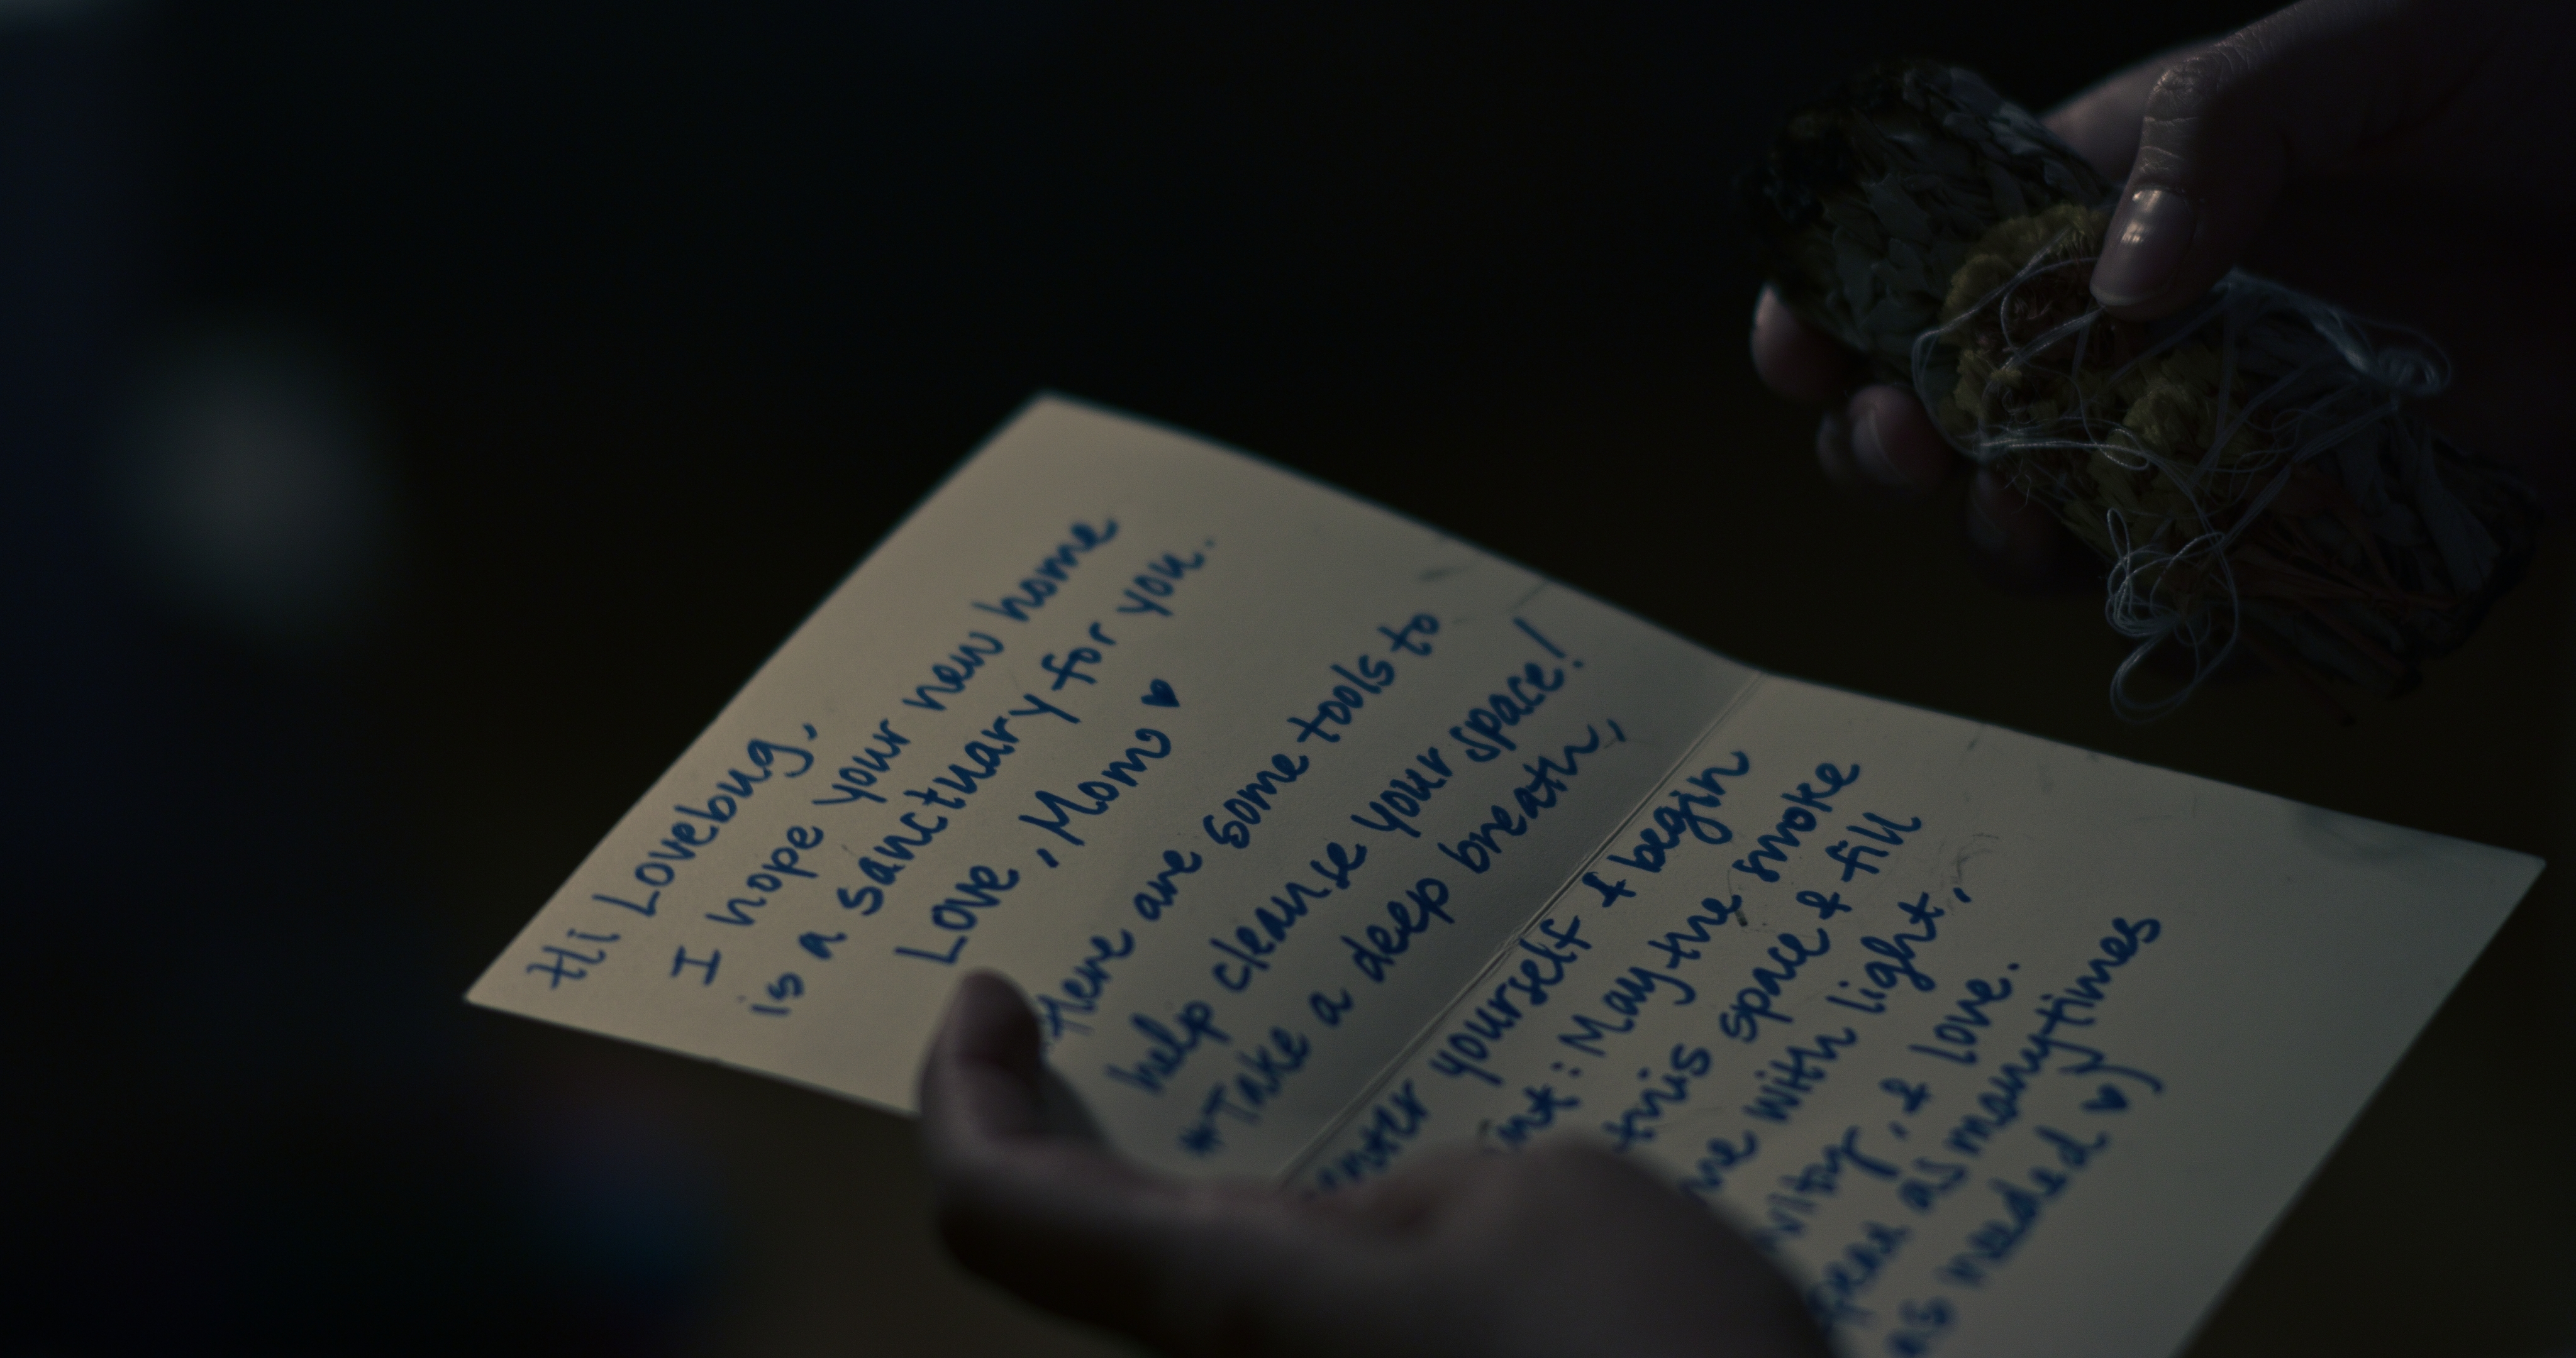 Hi Lovebug,
I hope your new home
is a sanctuary for you.
Love, Mom ♥
Here are some tools to
help cleanse your space!
*Take a deep breath,
yourself & begin
: May the smoke
this space & fill
with light,
& love.
as many times
as needed ♥